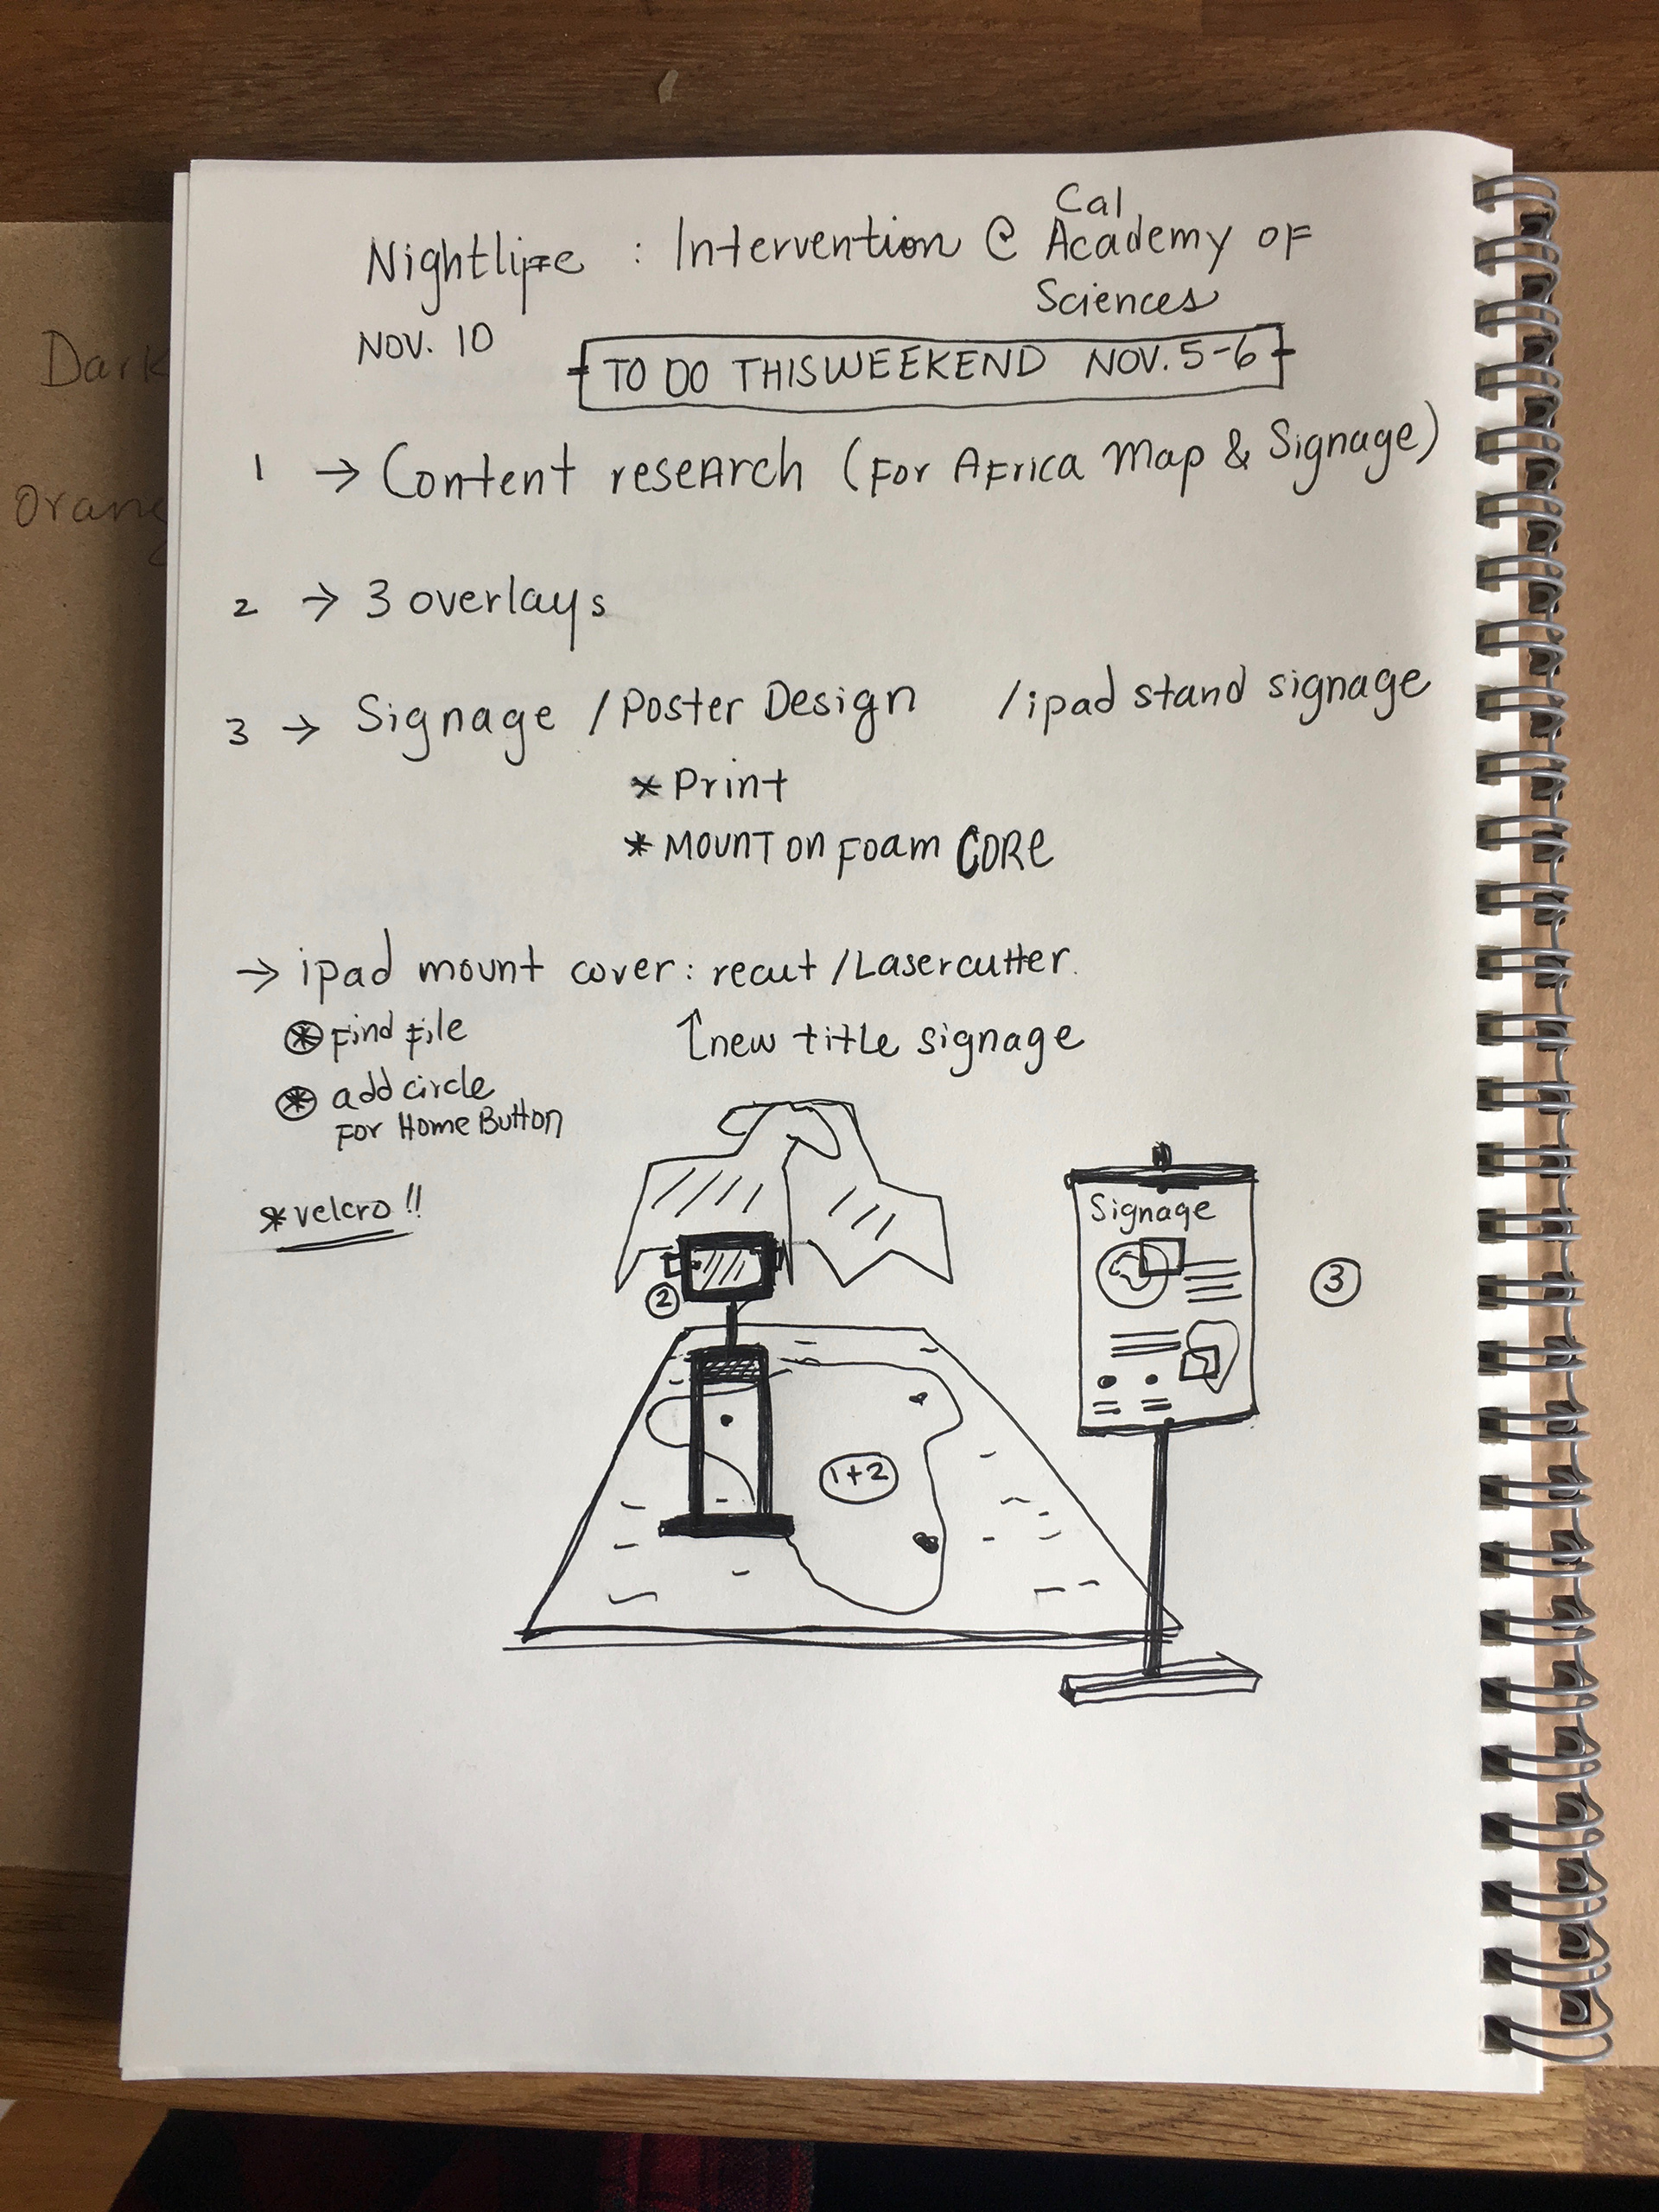 Nightlife : Intervention @ Cal Academy of
Sciences
Nov. 10
TO DO THIS WEEKEND NOV. 5-6
1 → Content research (For Africa Map & Signage)
2 → 3 overlays
3 → Signage / Poster Design / ipad stand signage
* Print
* Mount on Foam CORE
→ ipad mount cover: recut / Lasercutter.
* Find File ↑ new title signage
* add circle
For Home Button
* velcro !!
Signage
2
3
1+2
Dark